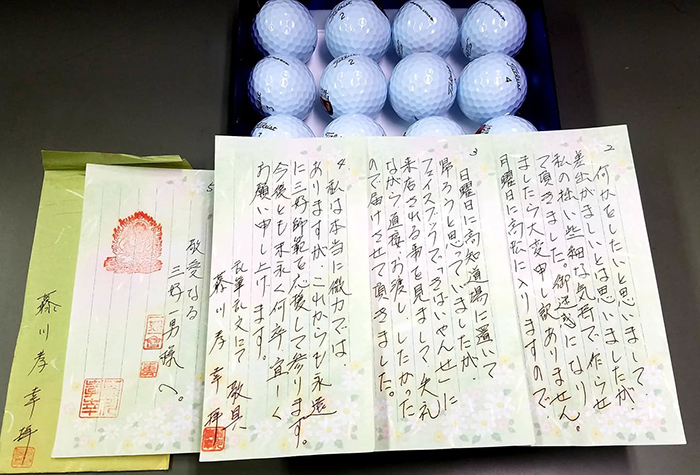 2
何かをしたいと思いまして
差出がましいとは思いましたが
私の拙い些細な気持で作らせ
て頂きました。御迷惑になり
ましたら大変申し訳ありません。
日曜日に高松に入りますので
3
日曜日に高知道場に置いて
帰ろうと思っていましたが
フェイスブックで「きはいやんせ」に
来店される事を見まして失礼
ながら直接お渡ししたかった
ので届けさせて頂きました。
4
私は本当に微力では
ありますが、これからも永遠
に三好師範を応援して参ります。
今後とも末永く何卒宜しく
お願い申し上げます。
乱筆乱文にて 敬具
藤川孝幸 拝
5
敬愛なる
三好一男様へ。
藤川孝幸 拝
Titleist
2
Titleist
2
Titleist
4